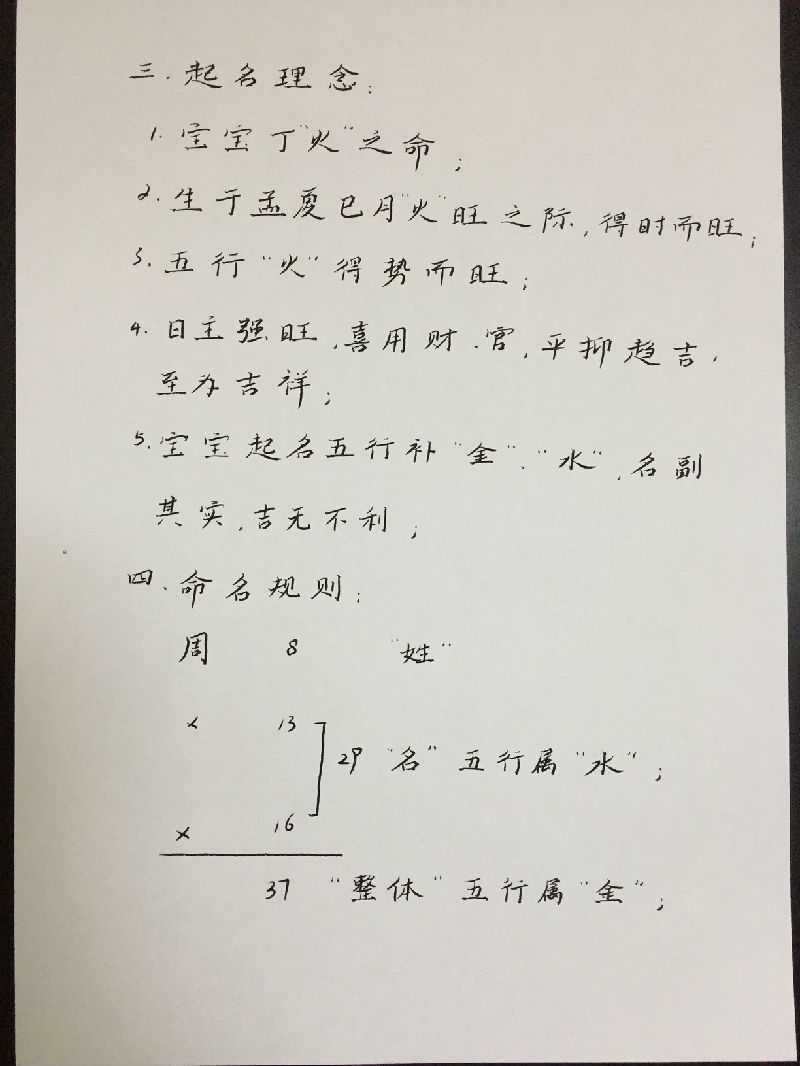 三.起名理念:
1.宝宝丁“火”之命;
2.生于孟夏巳月“火”旺之际,得时而旺;
3.五行“火”得势而旺;
4.日主强旺,喜用财.官,平抑趋吉,
至为吉祥;
5.宝宝起名五行补“金”、“水”,名副
其实,吉无不利;
四.命名规则:
周 8 “姓”
× 13
29 “名”五行属“水”;
× 16
37 “整体”五行属“金”;